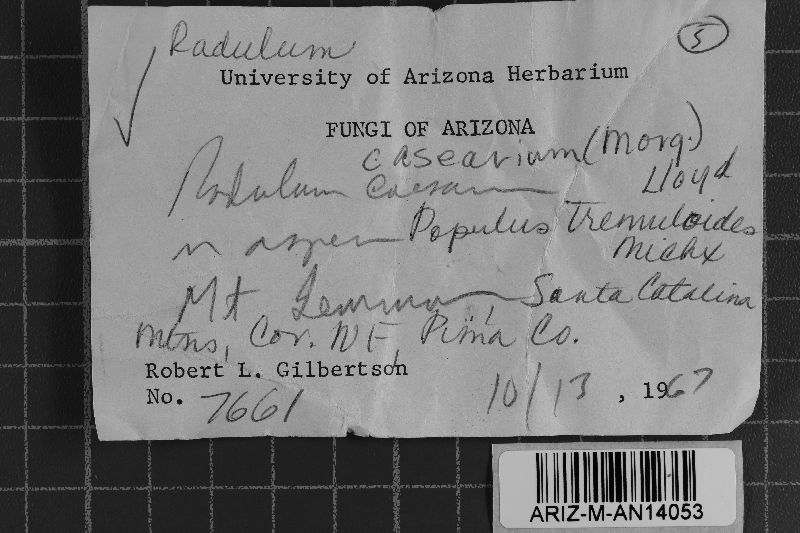 Radulum
5
University of Arizona Herbarium
FUNGI OF ARIZONA
casearium (Morg.)
Radulum Lloyd
n aspen Populus Tremuloides
Michx
Mt Lemmon, Santa Catalina
Mtns, Cor. NF, Pima Co.
Robert L. Gilbertson
No. 7661 10/13, 1967
ARIZ-M-AN14053